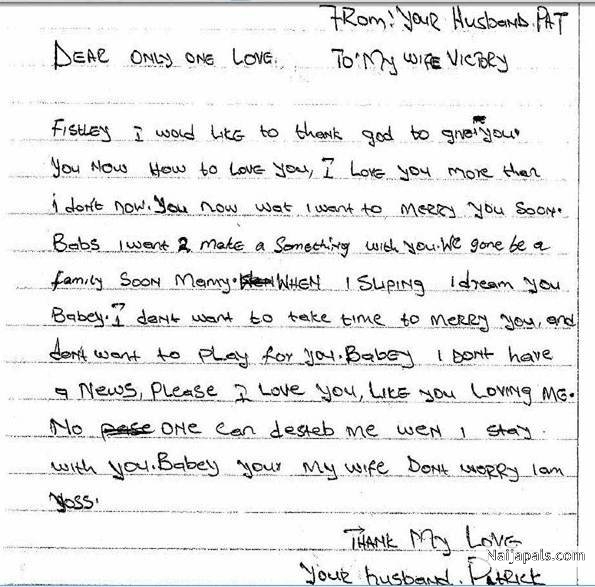 From: Your Husband. PAT
Dear only one love. To: My wife Victory
Fistley I wold like to thank god to give me you.
You now how to love you, I love you more than
i don't now. You now wat I want to merry you soon.
Babs I want 2 make a something with you. We gone be a
family soon Mamy. When I sliping I dream you
Babey. I dant want to take time to merry you, and
dont want to play for you. Babey I dont have
a news, please I love you, like you loving me.
No one can desteb me wen I stay
with you. Babey your my wife Dont worry I am
yoss.
Thank My Love
Your husband. Patrick
Naijapals.com